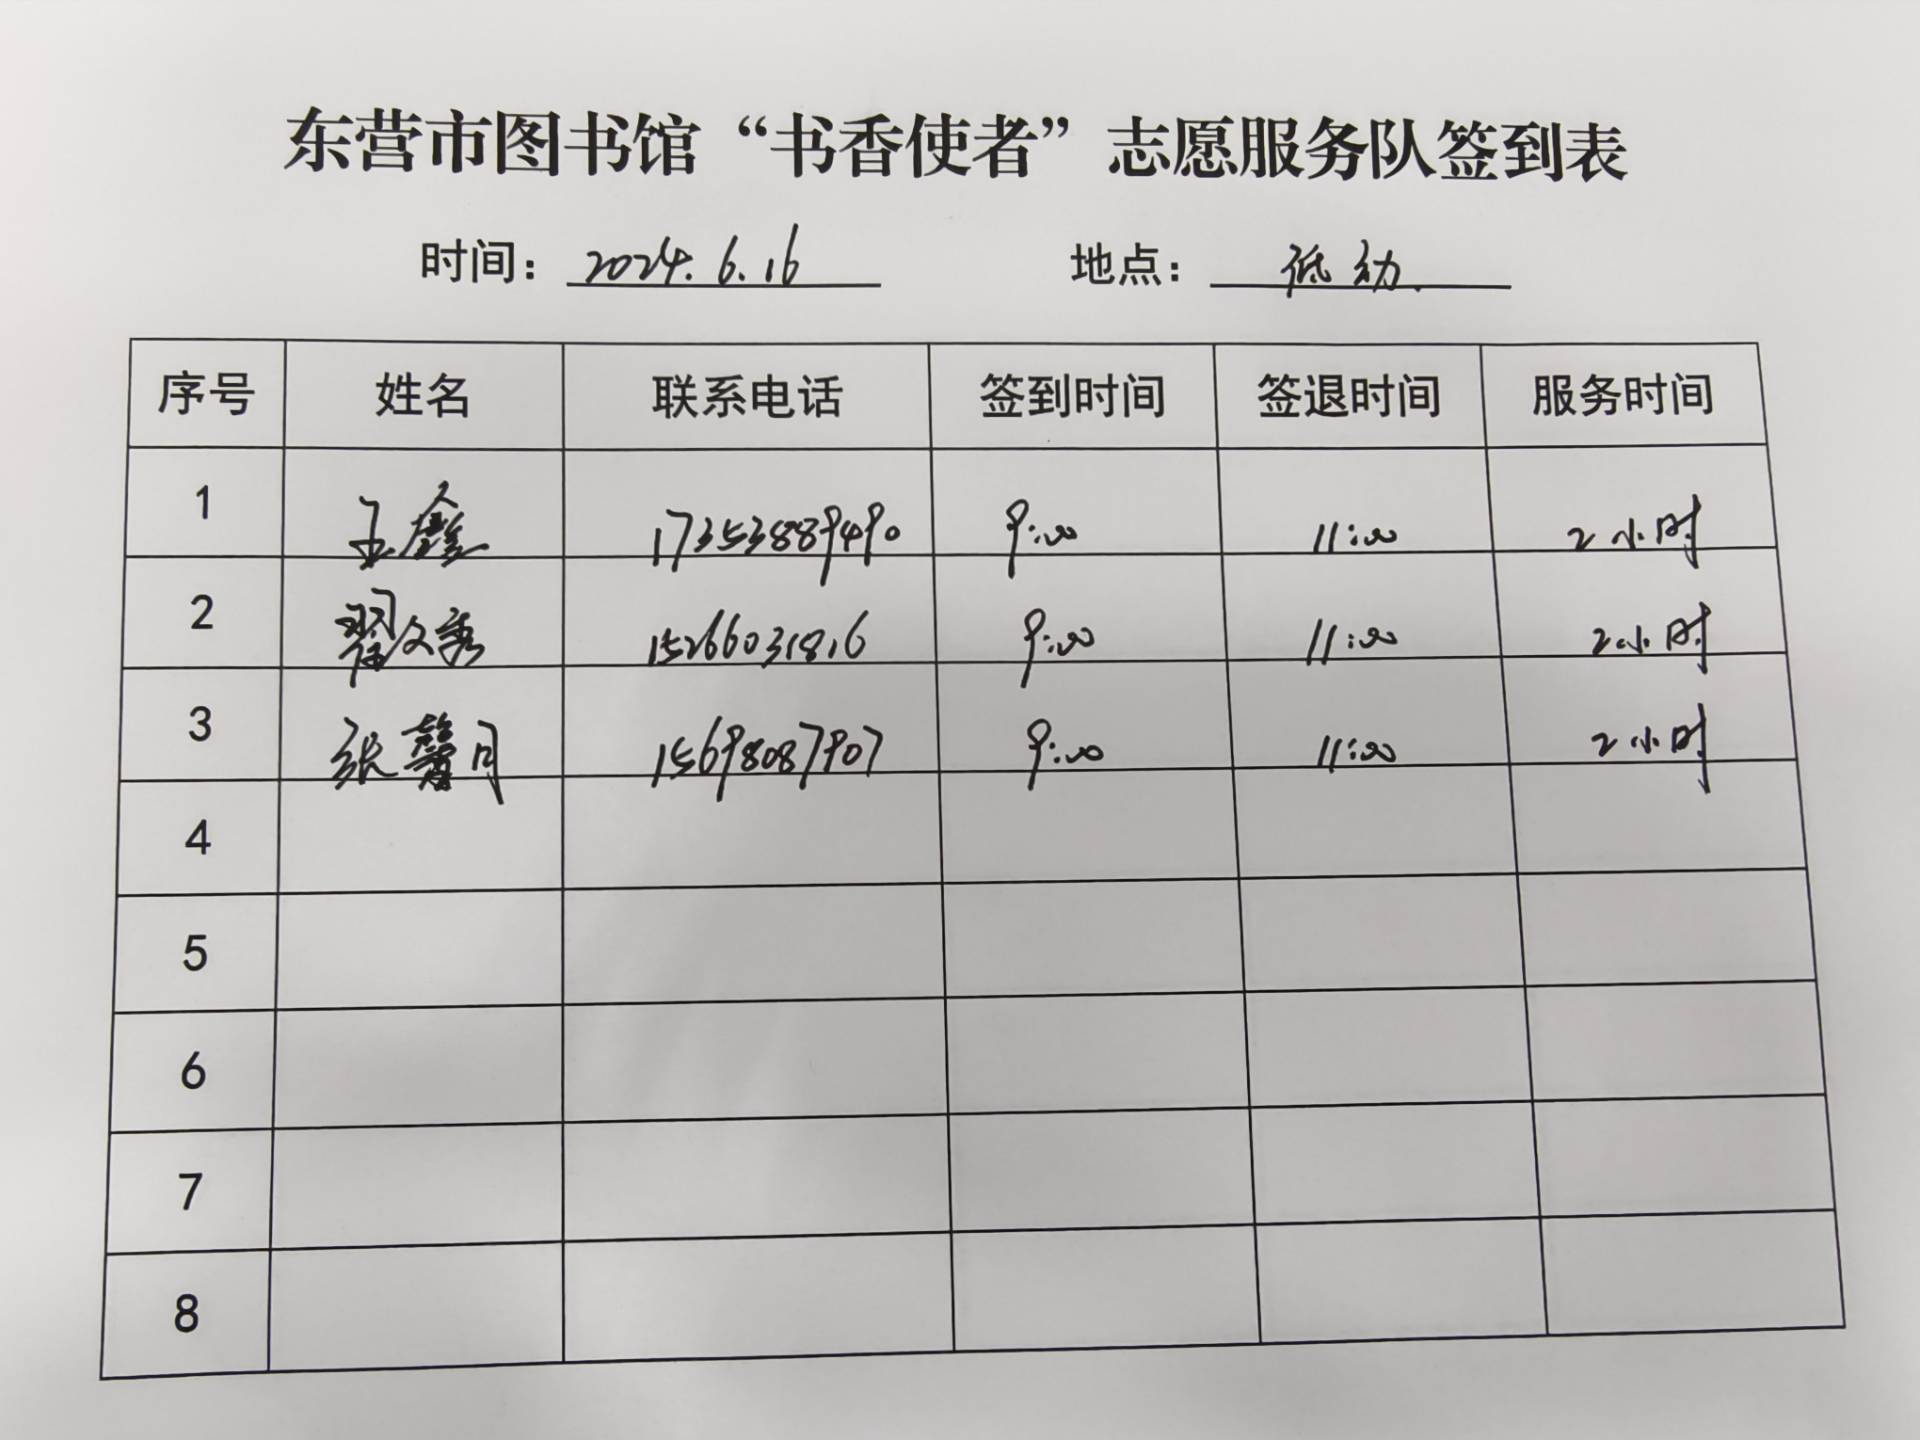 东营市图书馆“书香使者”志愿服务队签到表
时间：2024.6.16 地点：低幼.
序号 姓名 联系电话 签到时间 签退时间 服务时间
1 王鑫 17353889490 9:00 11:00 2小时
2 翟文秀 15266031816 9:00 11:00 2小时
3 张馨月 15698087907 9:00 11:00 2小时
4
5
6
7
8